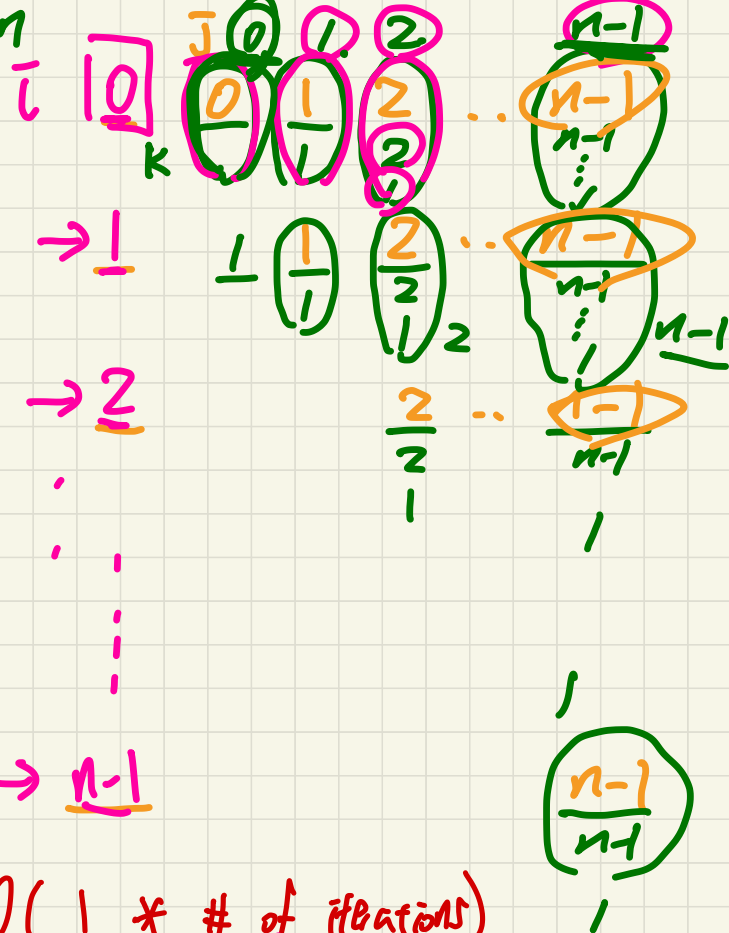 n j 0 1 2 n-1
i 0 0 1 2 .. n-1
k 1 2 n-1
1 ⋮
1
→ 1 1 1 2 .. n-1
1 2 n-1
1 2 ⋮ n-1
1
→ 2 2 .. n-1
2 n-1
1 1
→ n-1 n-1
n-1
( 1 * # of iterations)
1